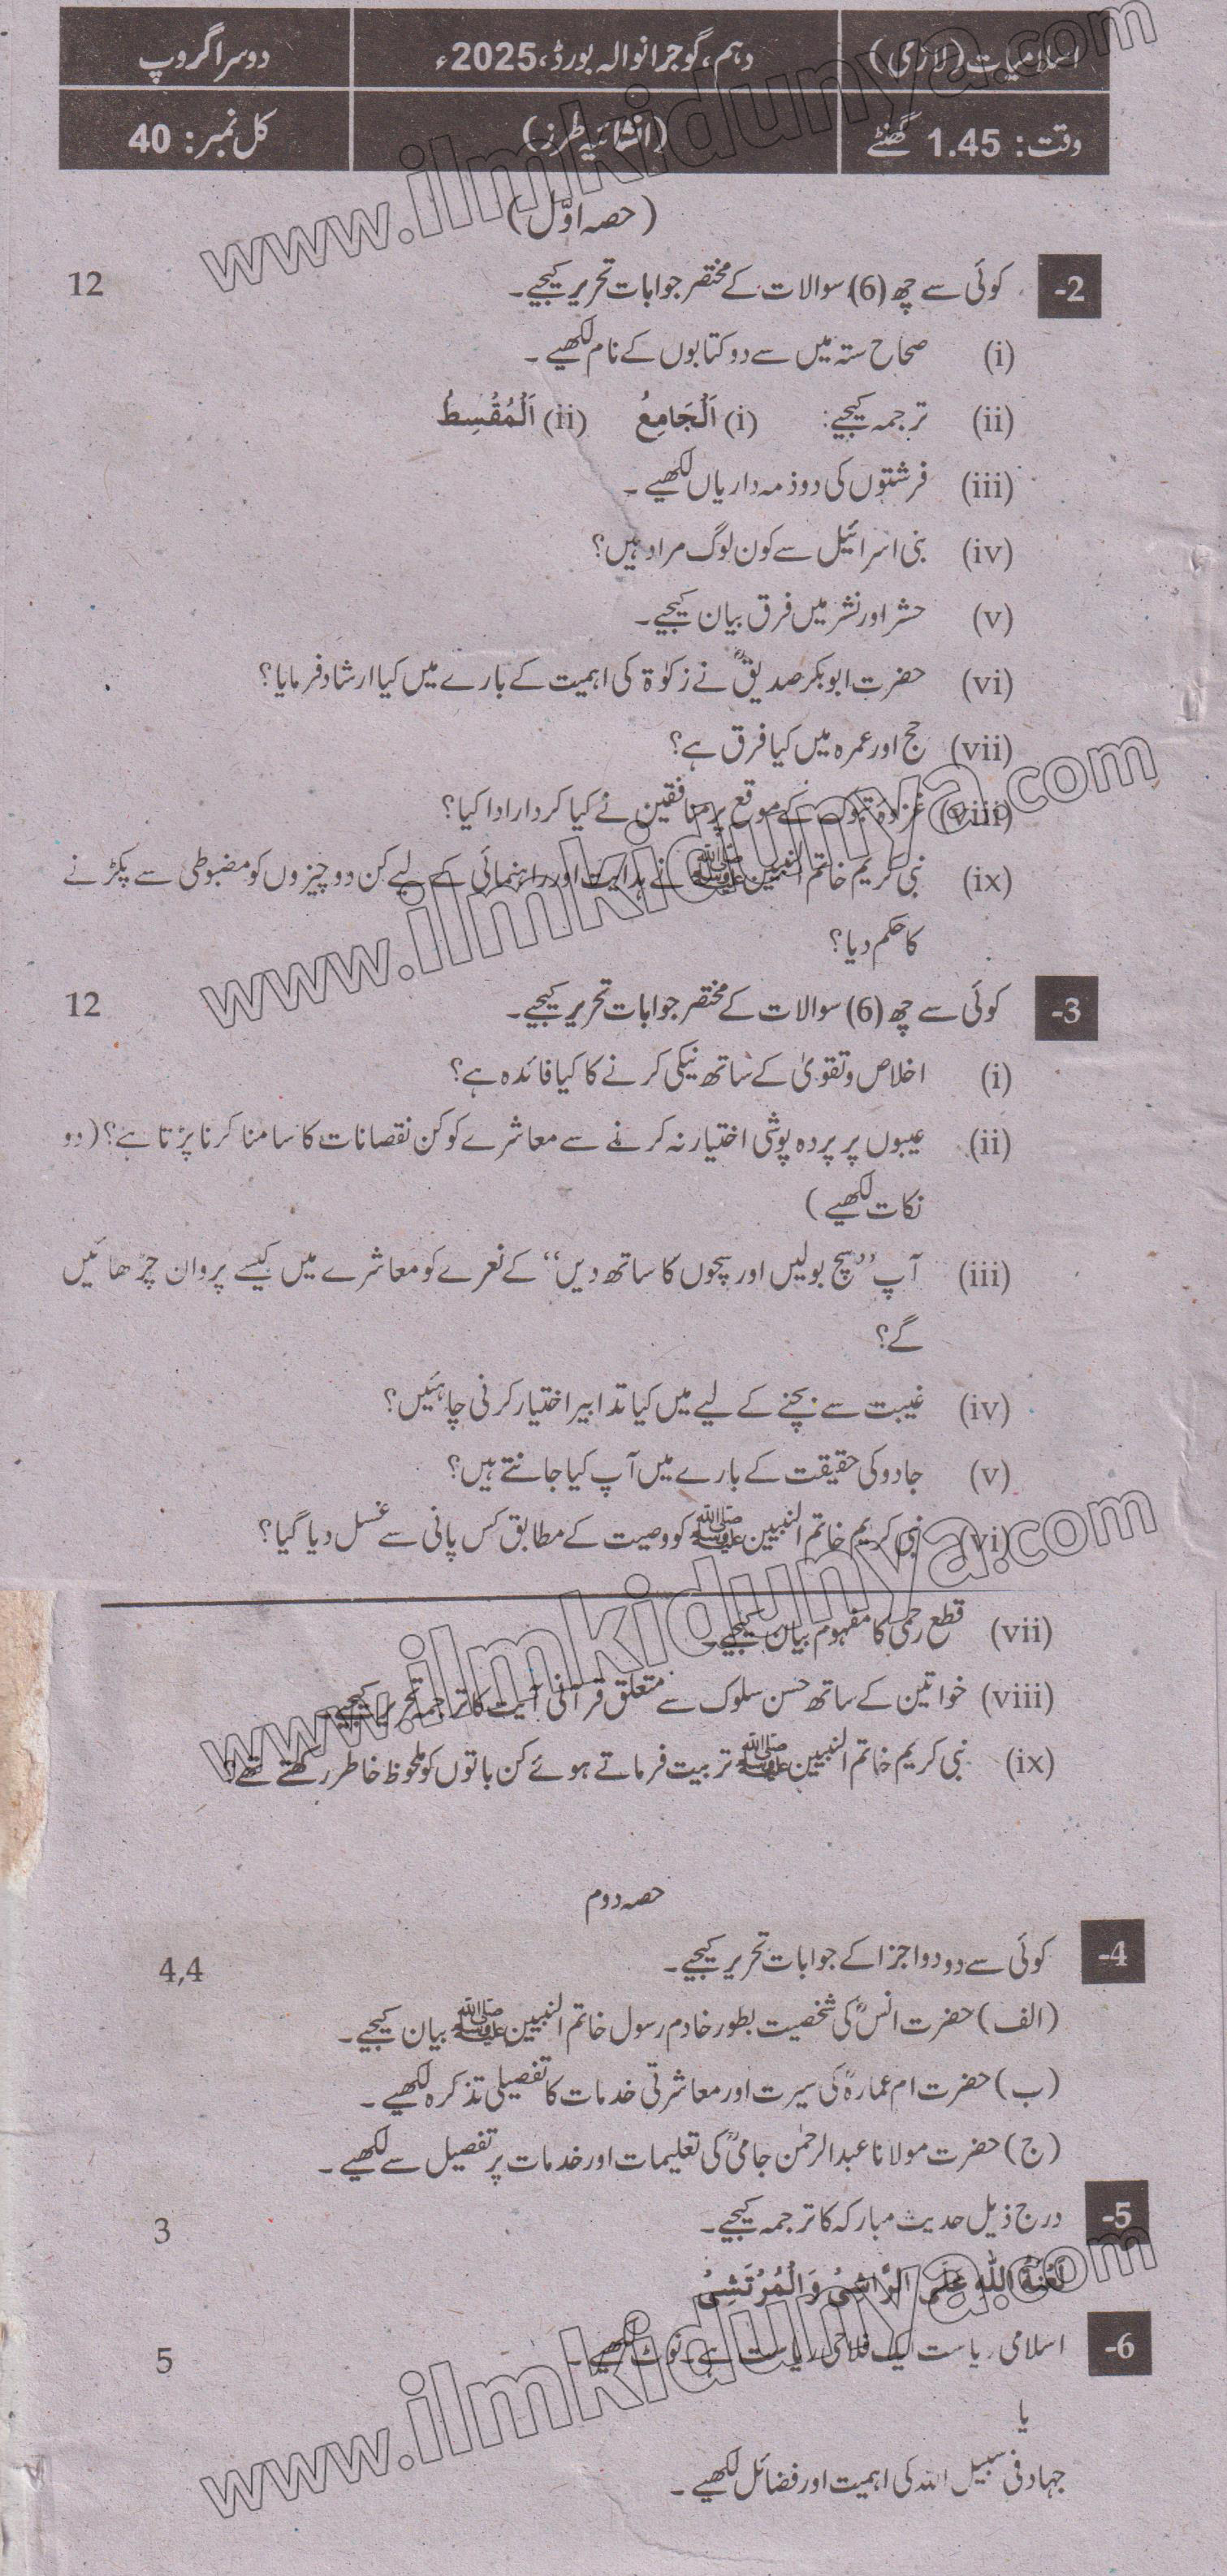 اسلامیات (لازمی) دہم، گوجرانوالہ بورڈ، 2025ء دوسرا گروپ
وقت: 1.45 گھنٹے (انشائیہ طرز) کل نمبر: 40
(حصہ اوّل)
2- کوئی سے چھ (6) سوالات کے مختصر جوابات تحریر کیجیے۔ 12
(i) صحاح ستہ میں سے دو کتابوں کے نام لکھیے۔
(ii) ترجمہ کیجیے: (i) اَلْجَامِعُ (ii) اَلْمُقْسِطُ
(iii) فرشتوں کی دو ذمہ داریاں لکھیے۔
(iv) بنی اسرائیل سے کون لوگ مراد ہیں؟
(v) حشر اور نشر میں فرق بیان کیجیے۔
(vi) حضرت ابوبکر صدیقؓ نے زکوٰۃ کی اہمیت کے بارے میں کیا ارشاد فرمایا؟
(vii) حج اور عمرہ میں کیا فرق ہے؟
(viii) غزوۂ تبوک کے موقع پر منافقین نے کیا کردار ادا کیا؟
(ix) نبی کریم خاتم النبیین ﷺ نے ہدایت اور راہنمائی کے لیے کن دو چیزوں کو مضبوطی سے پکڑنے
کا حکم دیا؟
3- کوئی سے چھ (6) سوالات کے مختصر جوابات تحریر کیجیے۔ 12
(i) اخلاص و تقویٰ کے ساتھ نیکی کرنے کا کیا فائدہ ہے؟
(ii) عیبوں پر پردہ پوشی اختیار نہ کرنے سے معاشرے کو کن نقصانات کا سامنا کرنا پڑتا ہے؟ (دو
نکات لکھیے)
(iii) آپ ’’سچ بولیں اور سچوں کا ساتھ دیں‘‘ کے نعرے کو معاشرے میں کیسے پروان چڑھائیں
گے؟
(iv) غیبت سے بچنے کے لیے میں کیا تدابیر اختیار کرنی چاہئیں؟
(v) جادو کی حقیقت کے بارے میں آپ کیا جانتے ہیں؟
(vi) نبی کریم خاتم النبیین ﷺ کو وصیت کے مطابق کس پانی سے غسل دیا گیا؟
(vii) قطع رحمی کا مفہوم بیان کیجیے۔
(viii) خواتین کے ساتھ حسن سلوک سے متعلق قرآنی آیت کا ترجمہ تحریر کیجیے۔
(ix) نبی کریم خاتم النبیین ﷺ تربیت فرماتے ہوئے کن باتوں کو ملحوظ خاطر رکھتے تھے؟
حصہ دوم
4- کوئی سے دو دو اجزا کے جوابات تحریر کیجیے۔ 4,4
(الف) حضرت انسؓ کی شخصیت بطور خادم رسول خاتم النبیین ﷺ بیان کیجیے۔
(ب) حضرت ام عمارہؓ کی سیرت اور معاشرتی خدمات کا تفصیلی تذکرہ لکھیے۔
(ج) حضرت مولانا عبدالرحمٰن جامیؒ کی تعلیمات اور خدمات پر تفصیل سے لکھیے۔
5- درج ذیل حدیث مبارکہ کا ترجمہ کیجیے۔ 3
لَعْنَةُ اللّٰهِ عَلَی الرَّاشِیْ وَالْمُرْتَشِیْ
6- اسلامی ریاست ایک فلاحی ریاست ہے۔ نوٹ لکھیے۔ 5
یا
جہاد فی سبیل اللہ کی اہمیت اور فضائل لکھیے۔
www.ilmkidunya.com
www.ilmkidunya.com
www.ilmkidunya.com
www.ilmkidunya.com